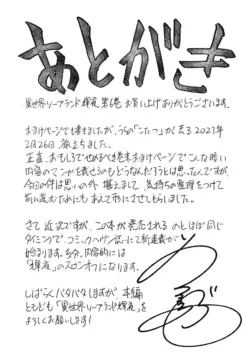 あとがき
異世界ソープランド輝夜 第6巻 お買い上げありがとうございます。
おまけページでも書きましたが、うちの「こたつ」が去る2023年
2月26日、旅立ちました。
正直、おもしろくせねばならない巻末おまけページでこんな暗い
内容のマンガを載せるのもどうなんだろうとは思ったんですが、
今回の件は思いの外 堪えまして、気持ちの整理をつけて
前に進むためにもあえて形にさせてもらいました。
さて 近況ですが、この本が発売される のとほぼ同じ
タイミングで、コミックヘヴン誌にて新連載が
始まります。多分、内容的には
「輝夜」のスピンオフになります。
しばらくバタバタしますが 本編
ともども「異世界ソープランド輝夜」を
よろしくお願いします!